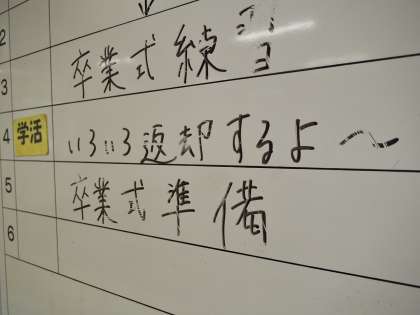 2
3 卒業式練習
4 学活 いろいろ返却するよ〜
5 卒業式準備
6